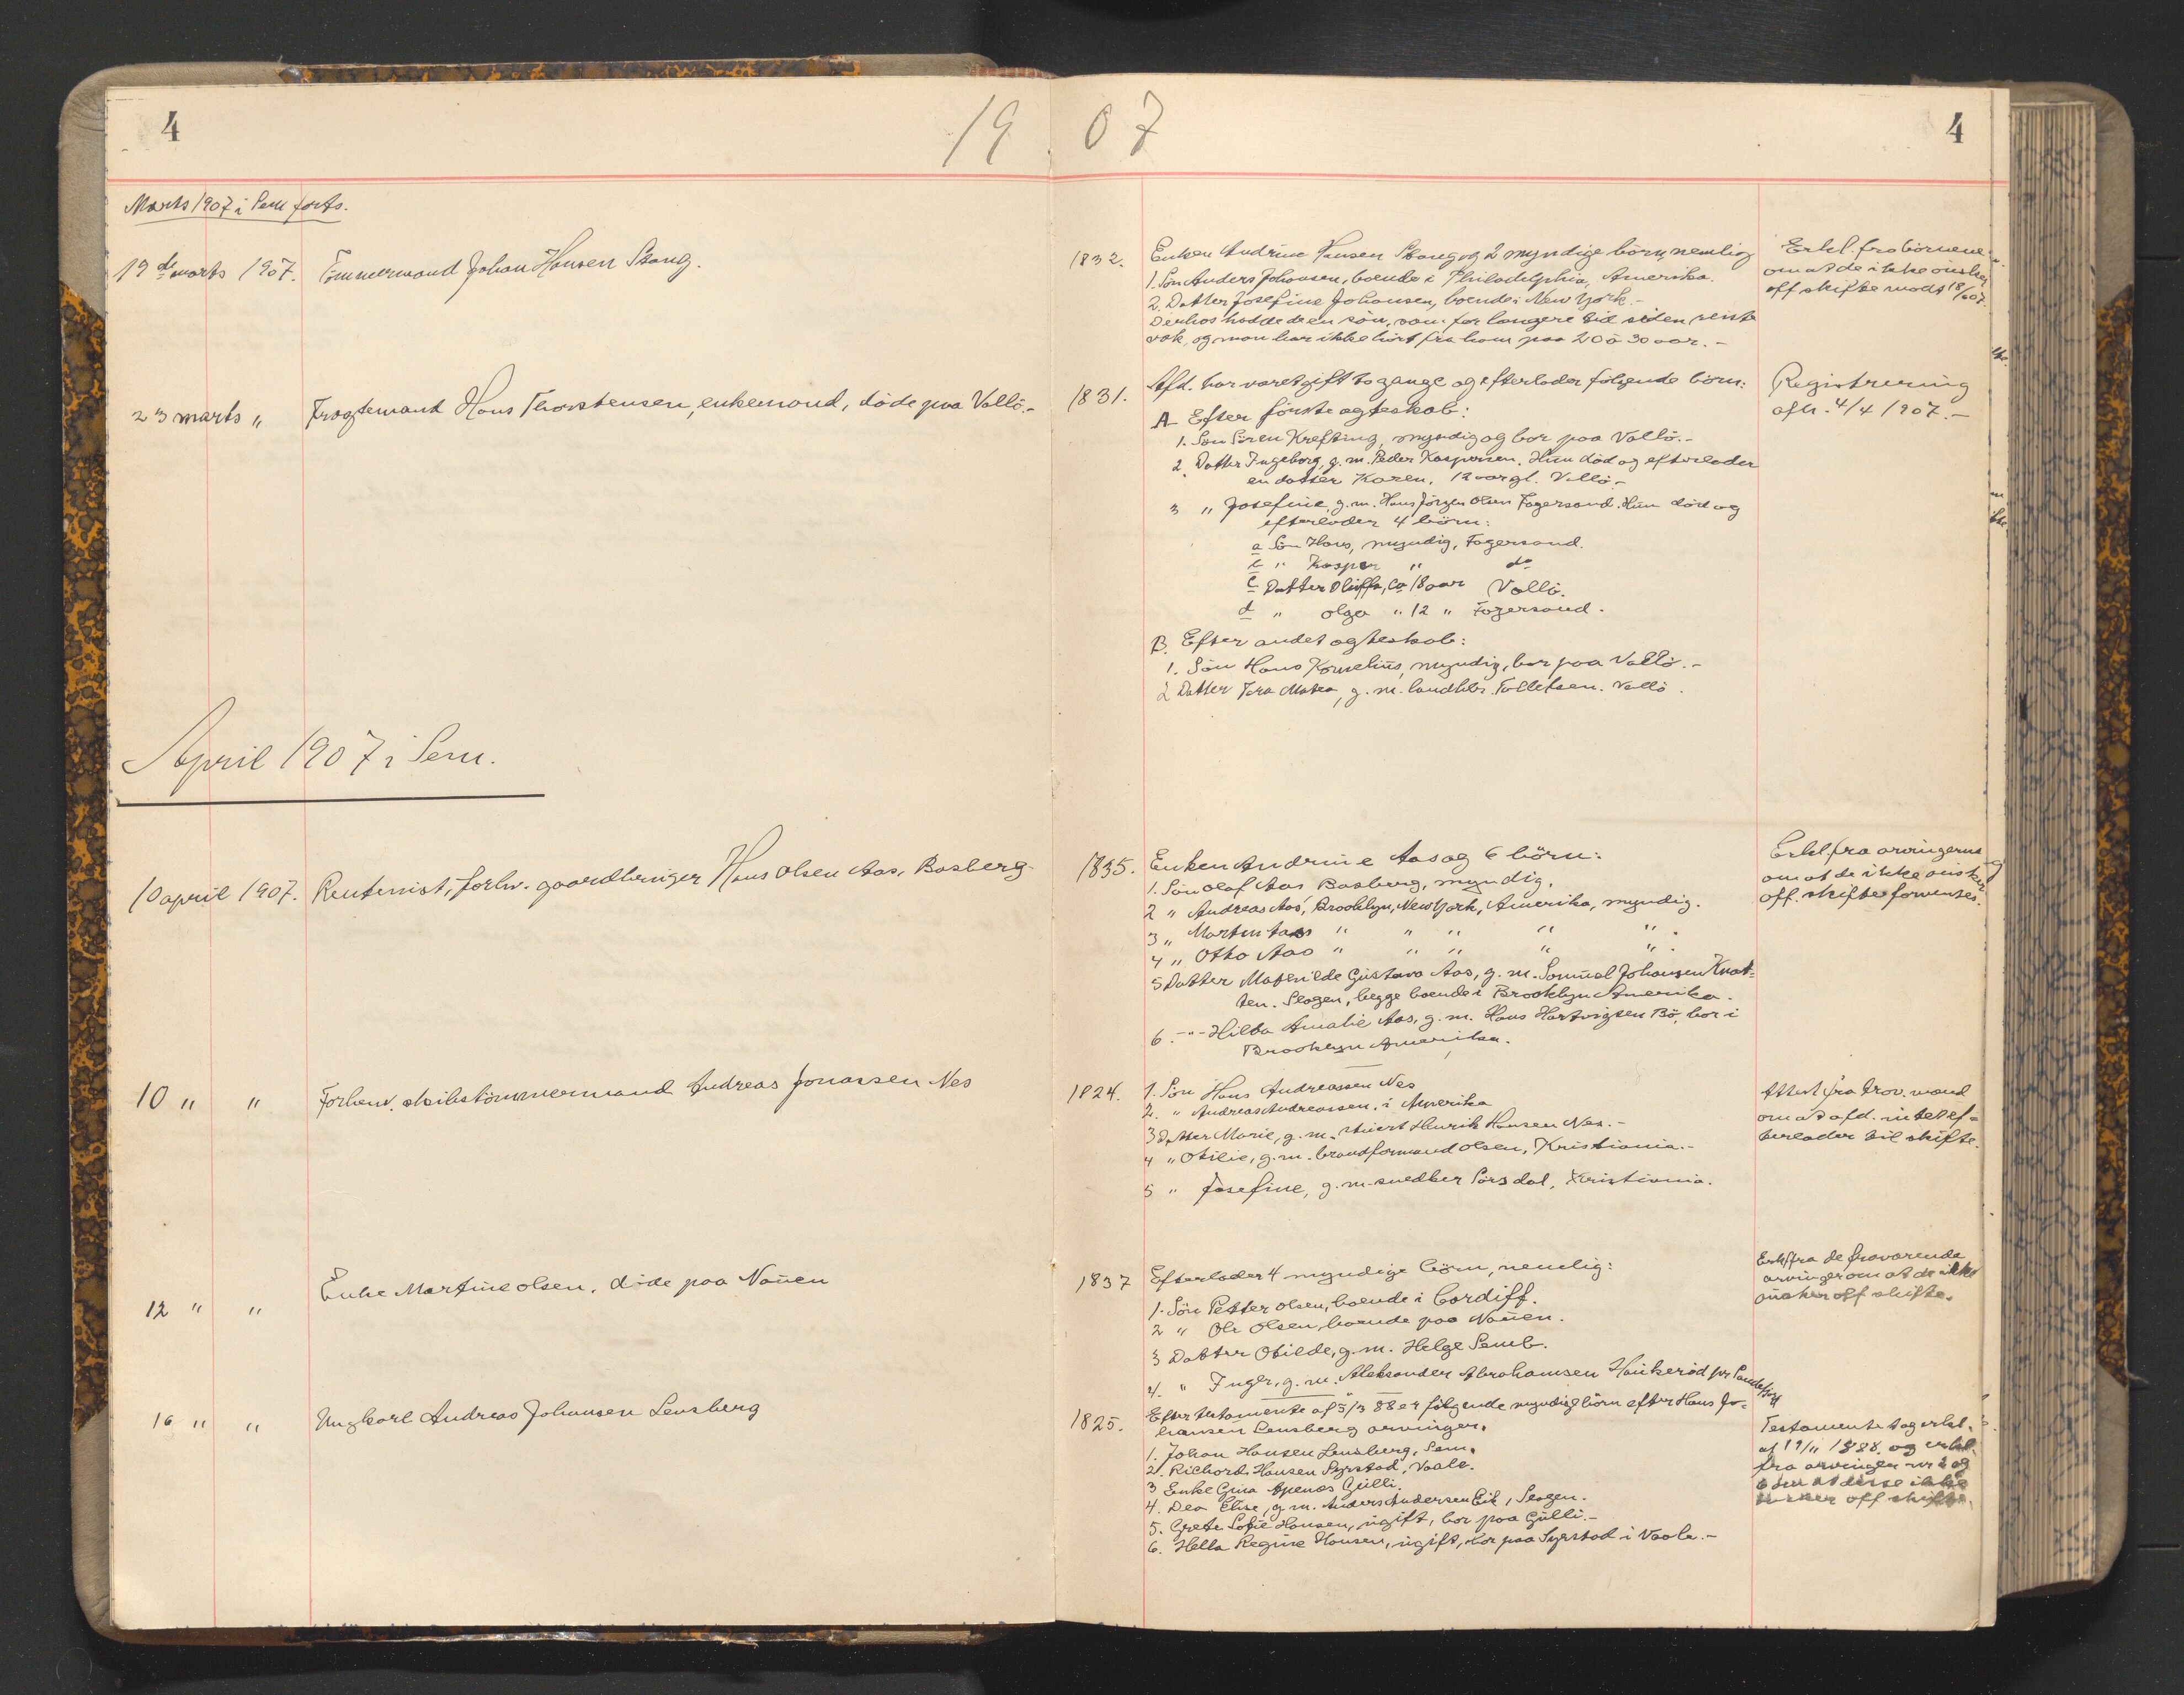 4
19 07
4
Marts 1907 i Sem forts.
19de marts 1907. Tömmermand Johan Hansen Stang.
1832.
Enken Andrine Hansen Stang og 2 myndige börn, nemlig
1. Sön Anders Johansen, boende i Philadelphia, Amerika.
2. Datter Josefine Johansen, boende i New York.-
Derhos hadde de en sön, som for længere tid siden reiste
væk, og man har ikke hört fra ham paa 20 à 30 aar.-
Erkl. fra börnene
om at de ikke önsker
off skifte modt 18/6 07.
23 marts " Fragtemand Hans Thorstensen, enkemand, döde paa Vallö.-
1831.
Afd. har været gift to gange og efterlader fölgende börn:
A. Efter förste ægteskab:
1. Sön Sören Krefting, myndig og bor paa Vallö.-
2. Datter Ingeborg, g. m. Peder Kaspersen. Hun död og efterlader
en datter Karen, 12 aar gl. Vallö.-
3 " Josefine, g. m. Hans Jörgen Olsen Fagersand. Hun död og
efterlader 4 börn:
a Sön Hans, myndig, Fagersand.
b " Kasper " do
c Datter Oluffa, ca 18 aar Vallö.
d " Olga " 12 " Fagersand.
B. Efter andet ægteskab:
1. Sön Hans Kornelius, myndig, bor paa Vallö.-
2 Datter Tora Matea, g. m. landhdr. Tollefsen. Vallö.
Registrering
afh. 4/4 1907.-
April 1907 i Sem.
10 april 1907. Rentenist, forhv. gaardbruger Hans Olsen Aas, Basberg-
1835.
Enken Andrine Aas og 6 börn:
1. Sön Olaf Aas Basberg, myndig.
2 " Andreas Aas, Brooklyn, New York, Amerika, myndig.
3 " Martin Aas " " " " " .
4 " Otto Aas " " " " " .
5 Datter Mathilde Gustava Aas, g. m. Samuel Johansen Knat-
ten. Slagen, begge boende i Brooklyn Amerika.
6. -"- Hilda Amalie Aas, g. m. Hans Hartvigsen Bö, bor i
Brooklyn Amerika.
Erkl. fra arvingerne
om at de ikke önsker
off. skifte forventes.
10 " " Forhenv. skibstömmermand Andreas Jonassen Nes
1824.
1. Sön Hans Andreassen Nes
2. " Andreas Andreassen, i Amerika
3 Datter Marie, g. m. Henrik Hansen Nes.-
4 " Otilie, g. m. brandformand Olsen, Kristiania.-
5 " Josefine, g. m. snedker Sörsdal, Kristiania.
Attest fra trov. mænd
om at afd. intet ef-
terlader til skifte.
12 " " Enke Martine Olsen, döde paa Nauen
1837
Efterlader 4 myndige börn, nemlig:
1. Sön Petter Olsen, boende i Cardiff.
2 " Ole Olsen, boende paa Nauen.
3 Datter Otilde, g. m. Helge Semb.
4. " Inger, g. m. Aleksander Abrahamsen Haukeröd pr Sandefjord
Erkl fra de fraværende
arvinger om at de ikke
önsker off skifte.
16 " " Ungkarl Andreas Johansen Lensberg
1825.
Efter testamente af 5/3 88 er fölgende myndige börn efter Hans Jo-
hansen Lensberg arvinger.
1. Johan Hansen Lensberg, Sem.
2. Richard Hansen Syrstad, Vaale.
3 Enke Gina Gulli.
4. Dea Elise, g. m. Anders Andersen Eik, Slagen.
5. Grete Sofie Hansen, ugift, bor paa Gulli.-
6. Hella Regine Hansen, ugift, bor paa Syrstad i Vaale.-
Testamente og erkl.
af 19/11 1888. og erkl.
fra arvingen nr 2 og
6 om at disse ikke
önsker off skifte.